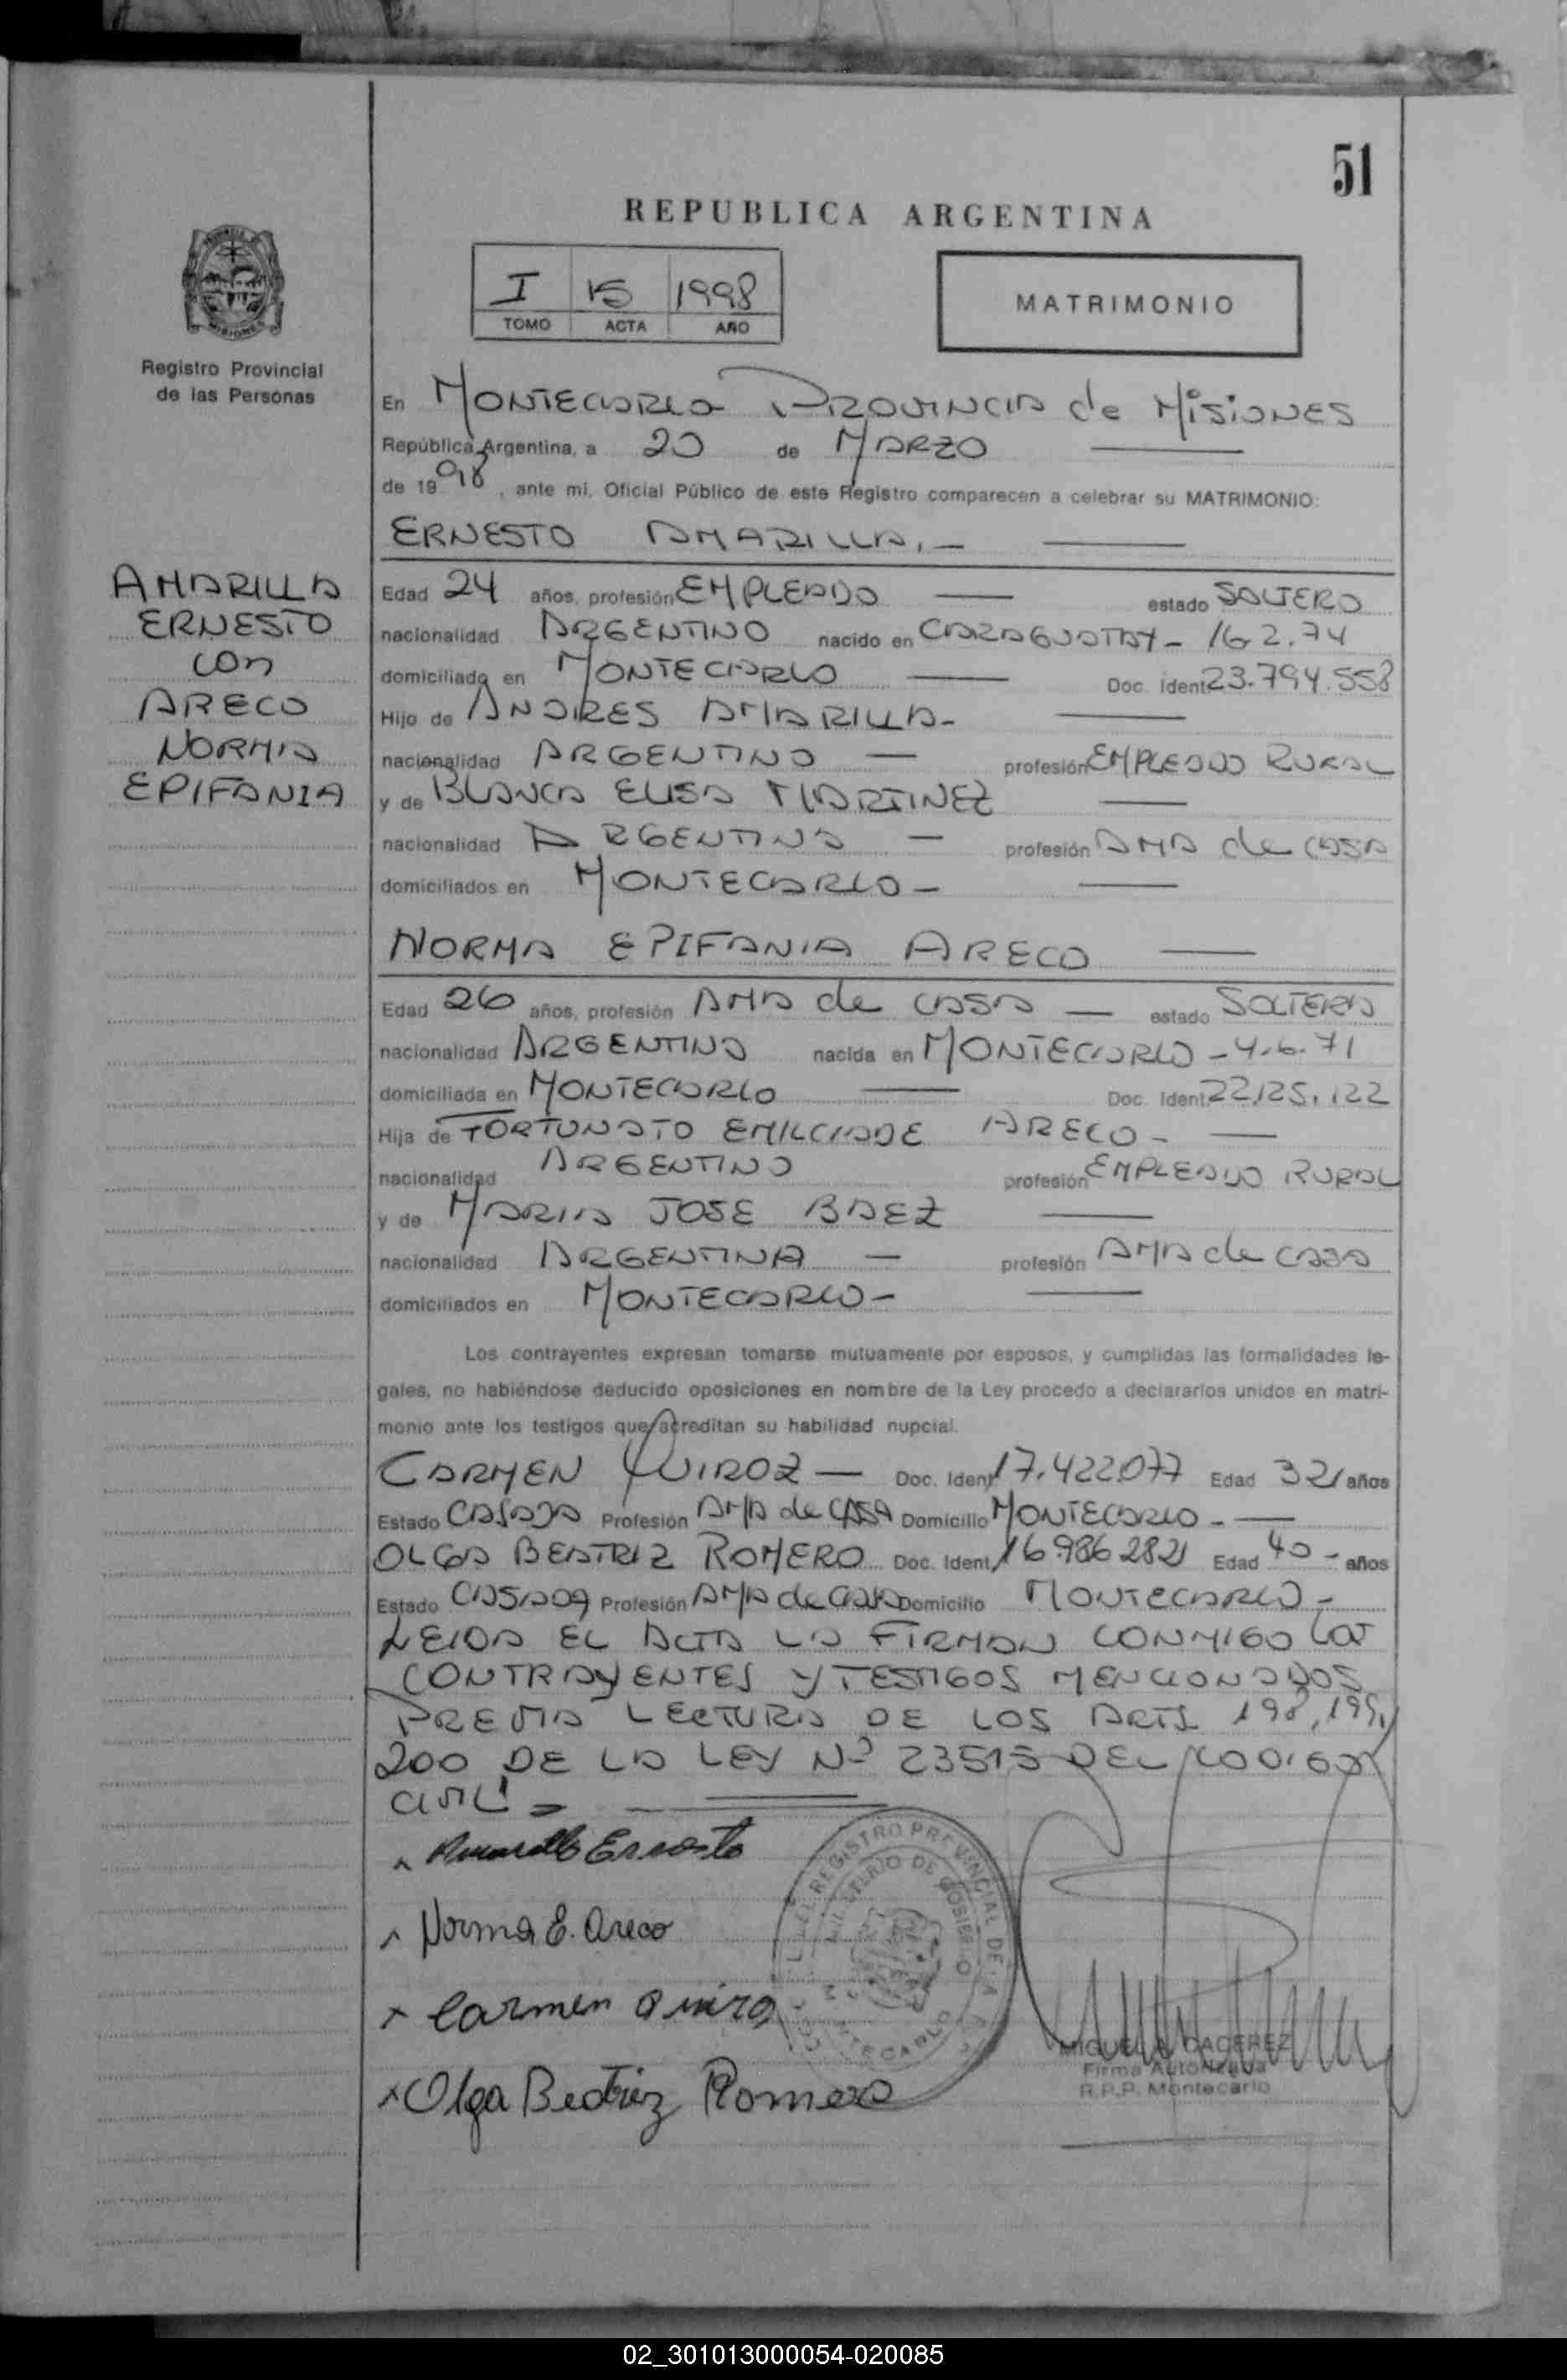 51
REPUBLICA ARGENTINA
I 15 1998
TOMO ACTA AÑO
MATRIMONIO
Registro Provincial
de las Personas
En MONTECARLO PROVINCIA de MISIONES
República Argentina, a 20 de MARZO
de 1998, ante mi, Oficial Público de este Registro comparecen a celebrar su MATRIMONIO:
ERNESTO AMARILLA.-
AMARILLA
ERNESTO
con
ARECO
NORMA
EPIFANIA
Edad 24 años, profesión EMPLEADO estado SOLTERO
nacionalidad ARGENTINO nacido en CARAGUATAY - 16.2.74
domiciliado en MONTECARLO Doc. Ident. 23.794.558
Hijo de ANDRES AMARILLA-
nacionalidad ARGENTINO - profesión EMPLEADO RURAL
y de BLANCA ELISA MARTINEZ
nacionalidad ARGENTINA - profesión AMA de CASA
domiciliados en MONTECARLO-
NORMA EPIFANIA ARECO
Edad 26 años, profesión AMA de CASA - estado SOLTERA
nacionalidad ARGENTINA nacida en MONTECARLO - 4.6.71
domiciliada en MONTECARLO Doc. Ident.
Hija de FORTUNATO EMILCIADE ARECO-
nacionalidad ARGENTINO profesión EMPLEADO RURAL
y de MARIA JOSE BAEZ
nacionalidad ARGENTINA - profesión AMA de CASA
domiciliados en MONTECARLO-
Los contrayentes expresan tomarse mutuamente por esposos, y cumplidas las formalidades le-
gales, no habiéndose deducido oposiciones en nombre de la Ley procedo a declararlos unidos en matri-
monio ante los testigos que acreditan su habilidad nupcial.
CARMEN QUIROZ - Doc. Ident. 17.422.077 Edad 32 años
Estado CASADA Profesión AMA de CASA Domicilio MONTECARLO-
OLGA BEATRIZ ROMERO Doc. Ident. 16.986.282 Edad 40 - años
Estado CASADA Profesión AMA de CASA Domicilio MONTECARLO-
LEIDA EL ACTA LA FIRMAN CONMIGO LOS
CONTRAYENTES Y TESTIGOS MENCIONADOS
PREVIA LECTURA DE LOS ARTS 198, 199,
200 DE LA LEY Nº 23515 DEL CODIGO
CIVIL =
Amarilla Ernesto
Norma E. Areco
Carmen Quiroz
Olga Beatriz Romero
REGISTRO PROVINCIAL DE LAS
MINISTERIO DE GOBIERNO
MONTECARLO
MIGUEL A. CACEREZ
Firma Autorizada
R.P.P. Montecarlo
02_301013000054-020085